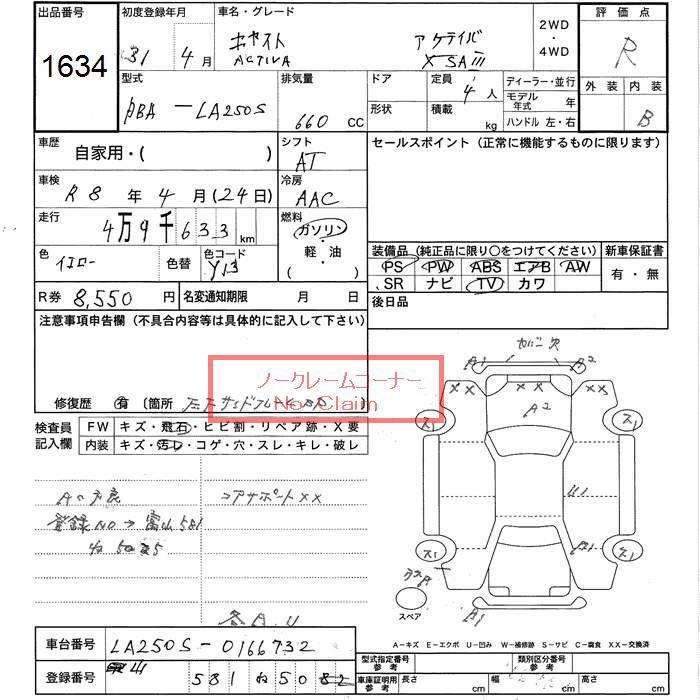 出品番号
1634
初度登録年月
31 4月
車名・グレード
キャスト アクティバ
ACTIVA X SAⅢ
2WD
・
4WD
評価点
R
外装 内装
B
型式
DBA - LA250S
排気量
660 CC
ドア
形状
定員
4人
積載 kg
ディーラー・並行
モデル年式 年
ハンドル 左・右
車歴
自家用・( )
シフト
AT
車検
R8年4月(24日)
冷房
AAC
走行
4万9千633km
燃料
ガソリン
・
軽・油
( )
色
イエロー
色替
色コード
Y13
R券 8,550円
名変通知期限 月 日
セールスポイント (正常に機能するものに限ります)
装備品 (純正品に限り○をつけてください)
PS PW ABS エアB AW
SR ナビ TV カワ
新車保証書
有・無
後日品
注意事項申告欄 (不具合内容等は具体的に記入して下さい)
ノークレームコーナー
No Claim
修復歴 有 〔箇所
検査員記入欄
FW キズ・飛石・ヒビ割・リペア跡・X要
内装 キズ・汚レ・コゲ・穴・スレ・キレ・破レ
コアサポートXX
登録NO→富山581
カバー欠
A1 A2
XX XX XX
A2
ス1 ス1
B1
ス1 ス1
スペア
B1
A-キズ E-エクボ U-凹み W-補修跡 S-サビ C-腐食 XX-交換済
車台番号 LA250S-0166732
登録番号 581 ね 5082
型式指定番号参考
類別区分番号参考
車庫証明用参考 長さ cm 幅 cm 高さ cm